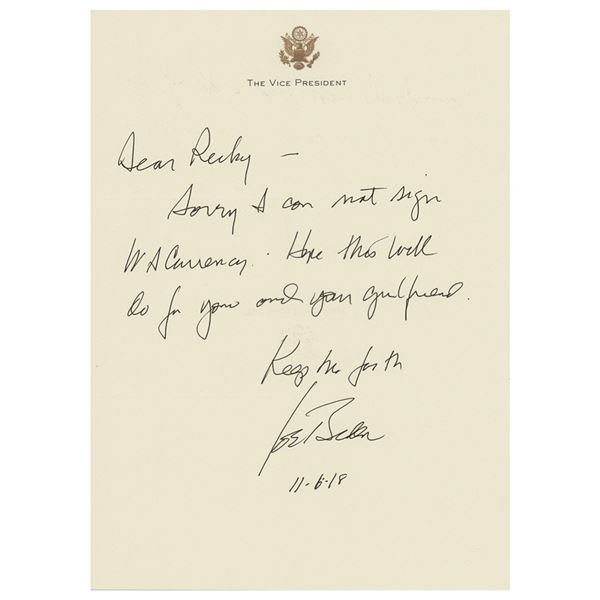 THE VICE PRESIDENT
Dear Ricky —
Sorry I can not sign
US Currency. Hope this will
do for you and your girlfriend.
Keep the faith
Joe Biden
11-6-18